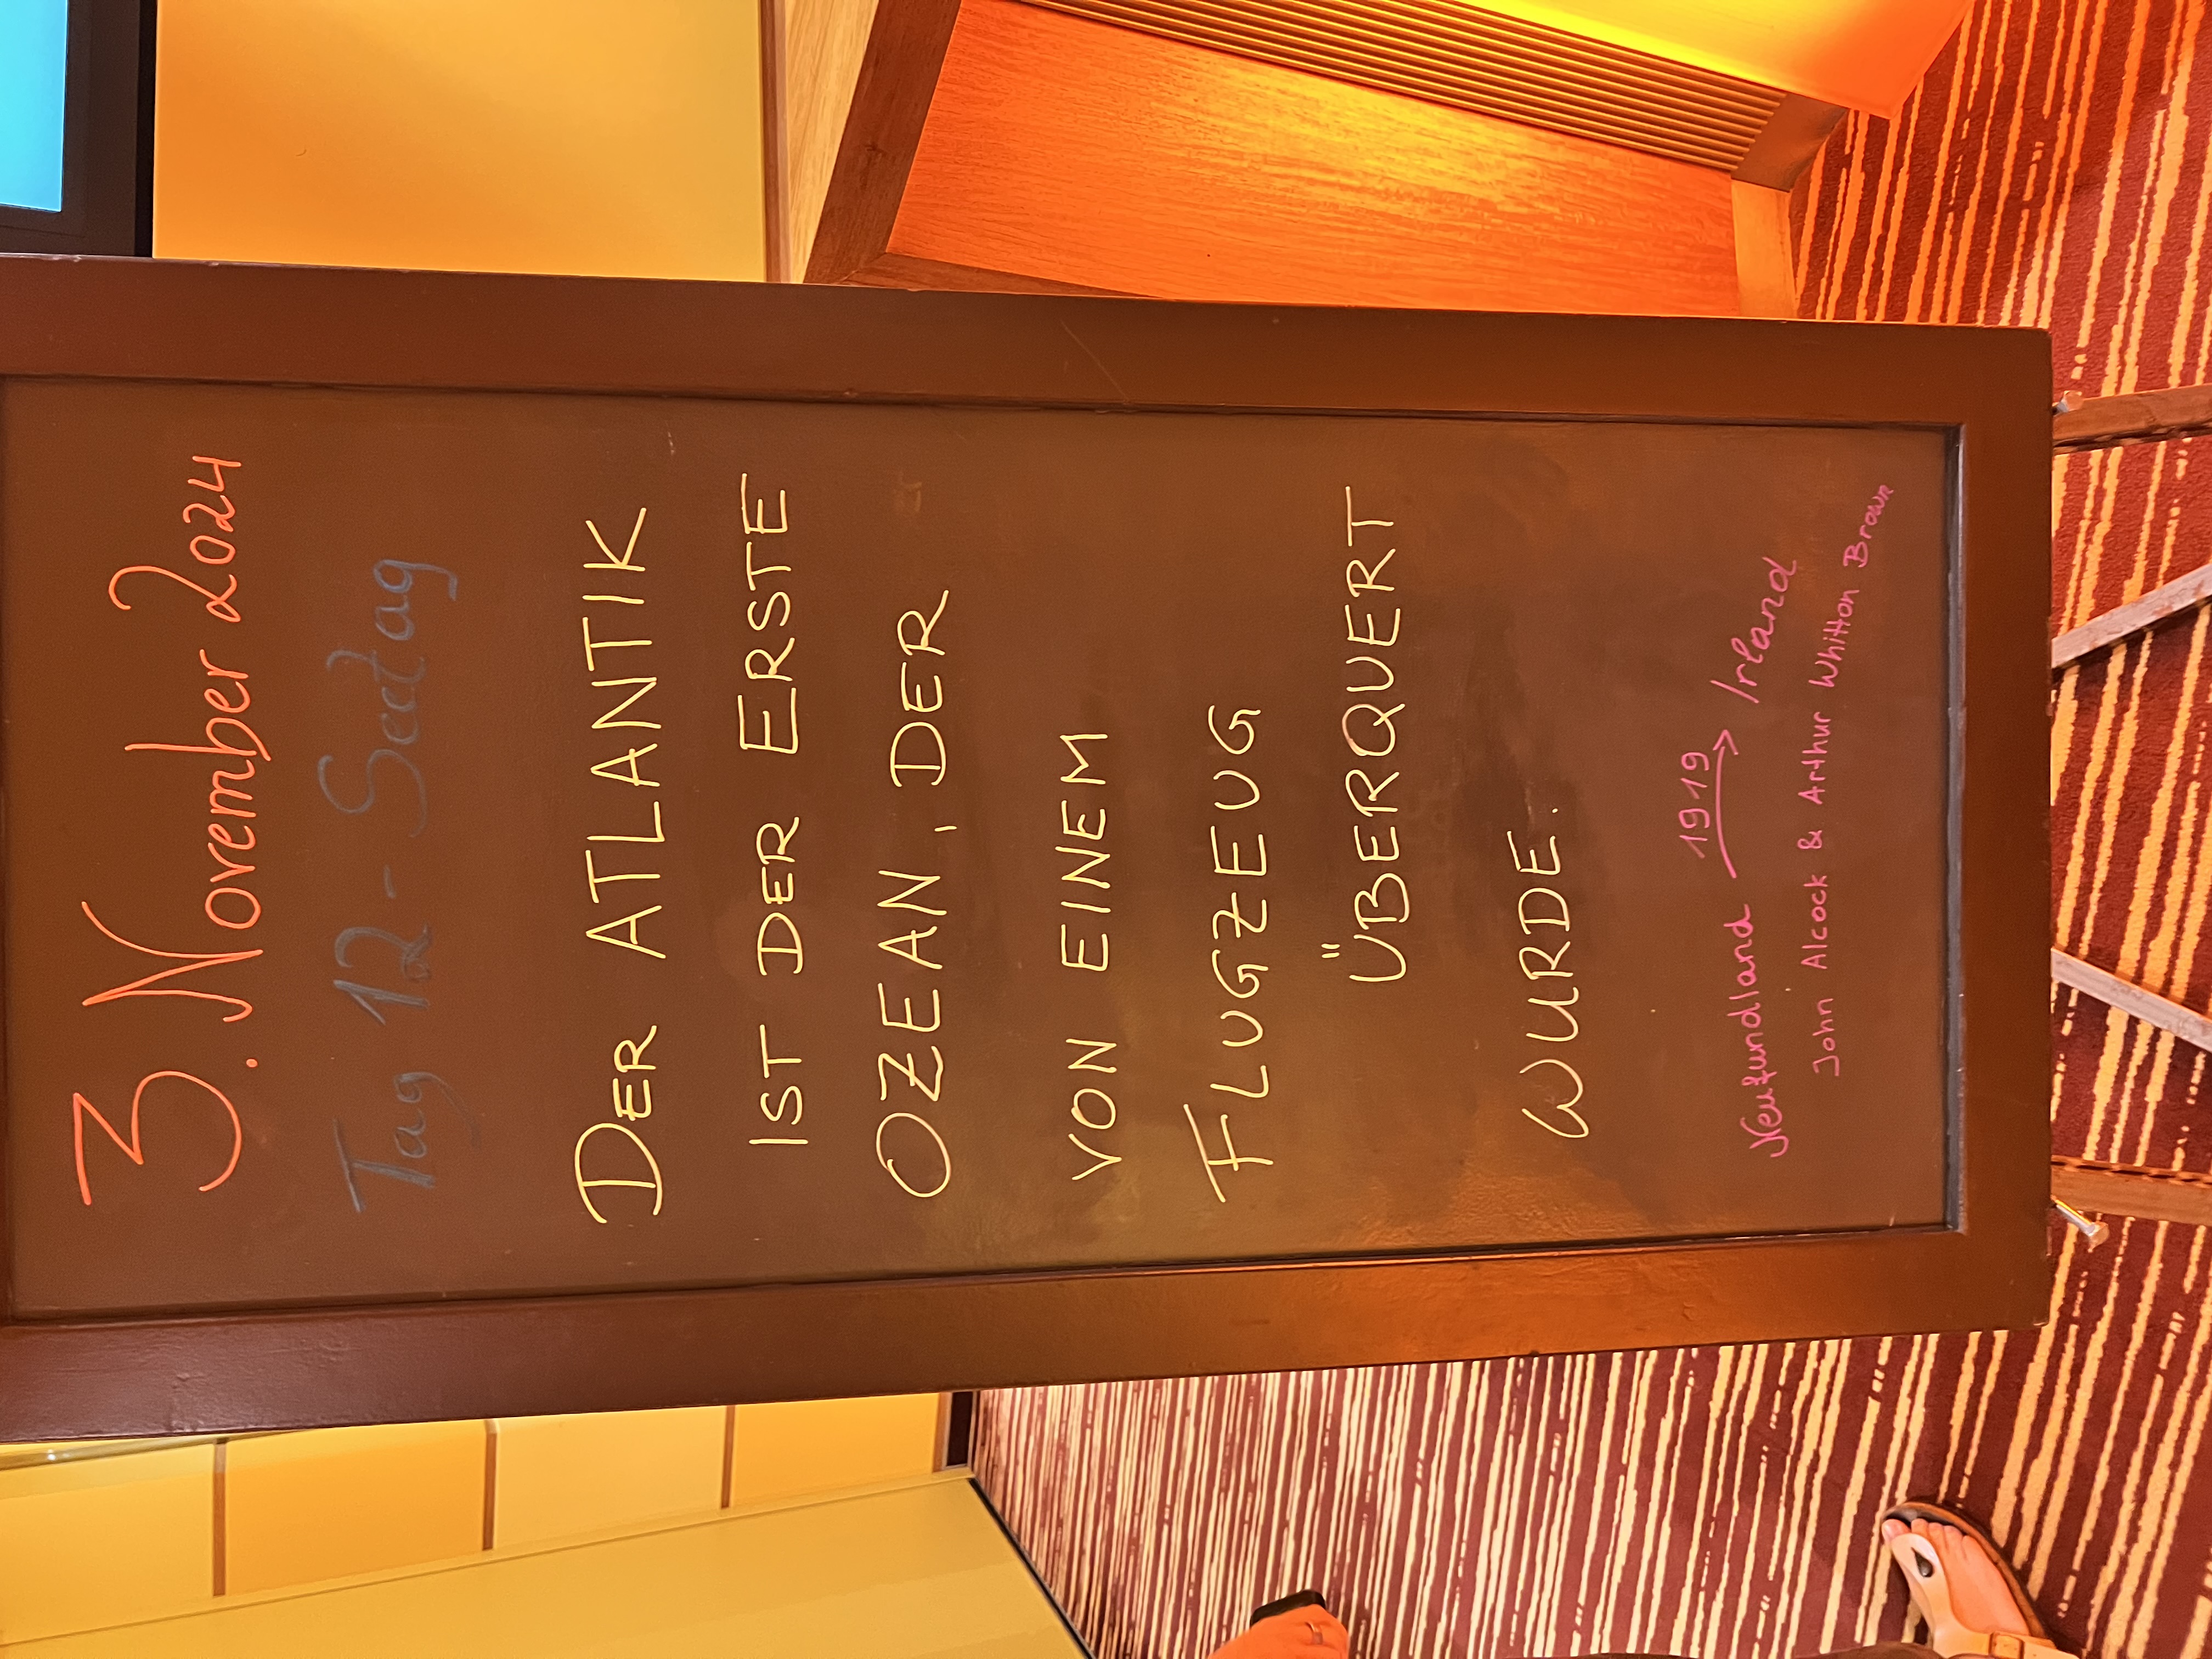 3. November 2024
Tag 12 - Seetag
DER ATLANTIK
IST DER ERSTE
OZEAN, DER
VON EINEM
FLUGZEUG
ÜBERQUERT
WURDE.
1919
Neufundland → Irland
John Alcock & Arthur Whitton Brown